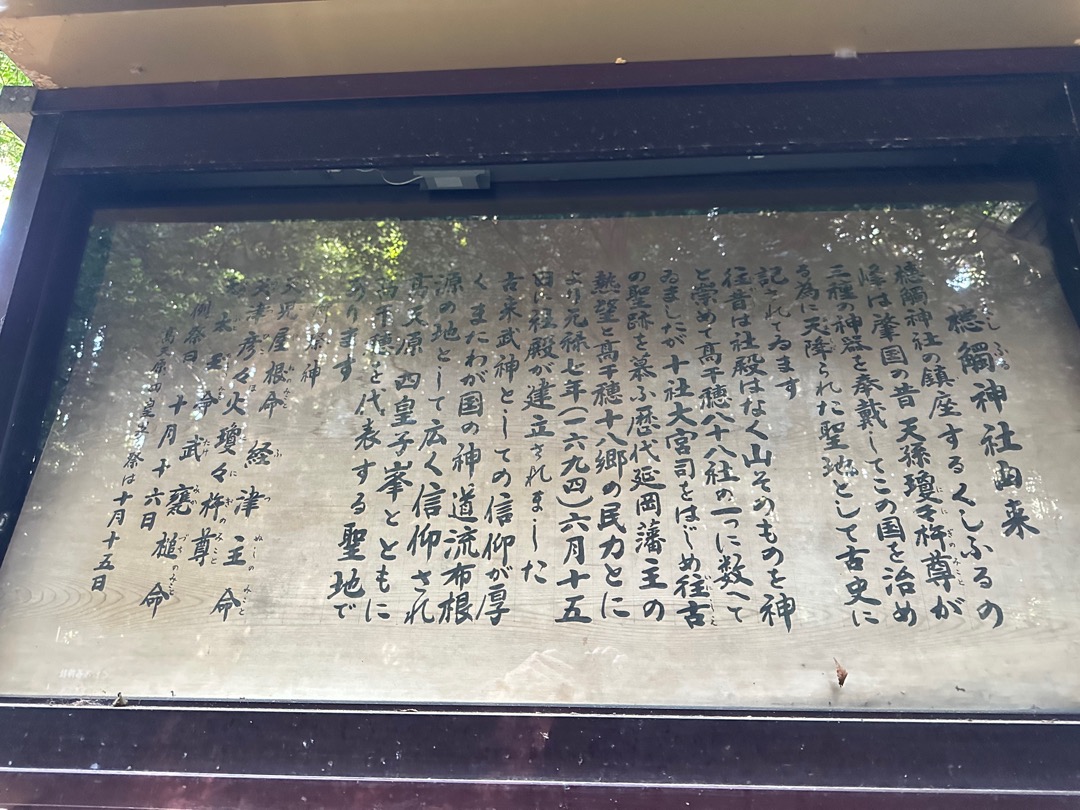 槵觸神社由来
槵觸神社の鎮座するくしふるの
峰は肇国の昔天孫瓊々杵尊が
三種の神器を奉戴してこの国を治め
る為に天降られた聖地として古史に
記されてゐます
往昔は社殿はなく山そのものを神
と崇めて高千穂八十八社の一つに数へて
ゐましたが十社大宮司をはじめ往古
の聖跡を慕ふ歴代延岡藩主の
熱望と高千穂十八郷の民力とに
より元禄七年(一六九四)六月十五
日に社殿が建立されました
古来武神としての信仰が厚
くまたわが国の神道流布根
源の地として広く信仰され
高天原四皇子峯とともに
高千穂を代表する聖地で
あります
神
児屋根命 経津主命
彦々火瓊々杵尊
命 武甕槌命
例祭日 十月十六日
高天原四皇子祭は十月十五日